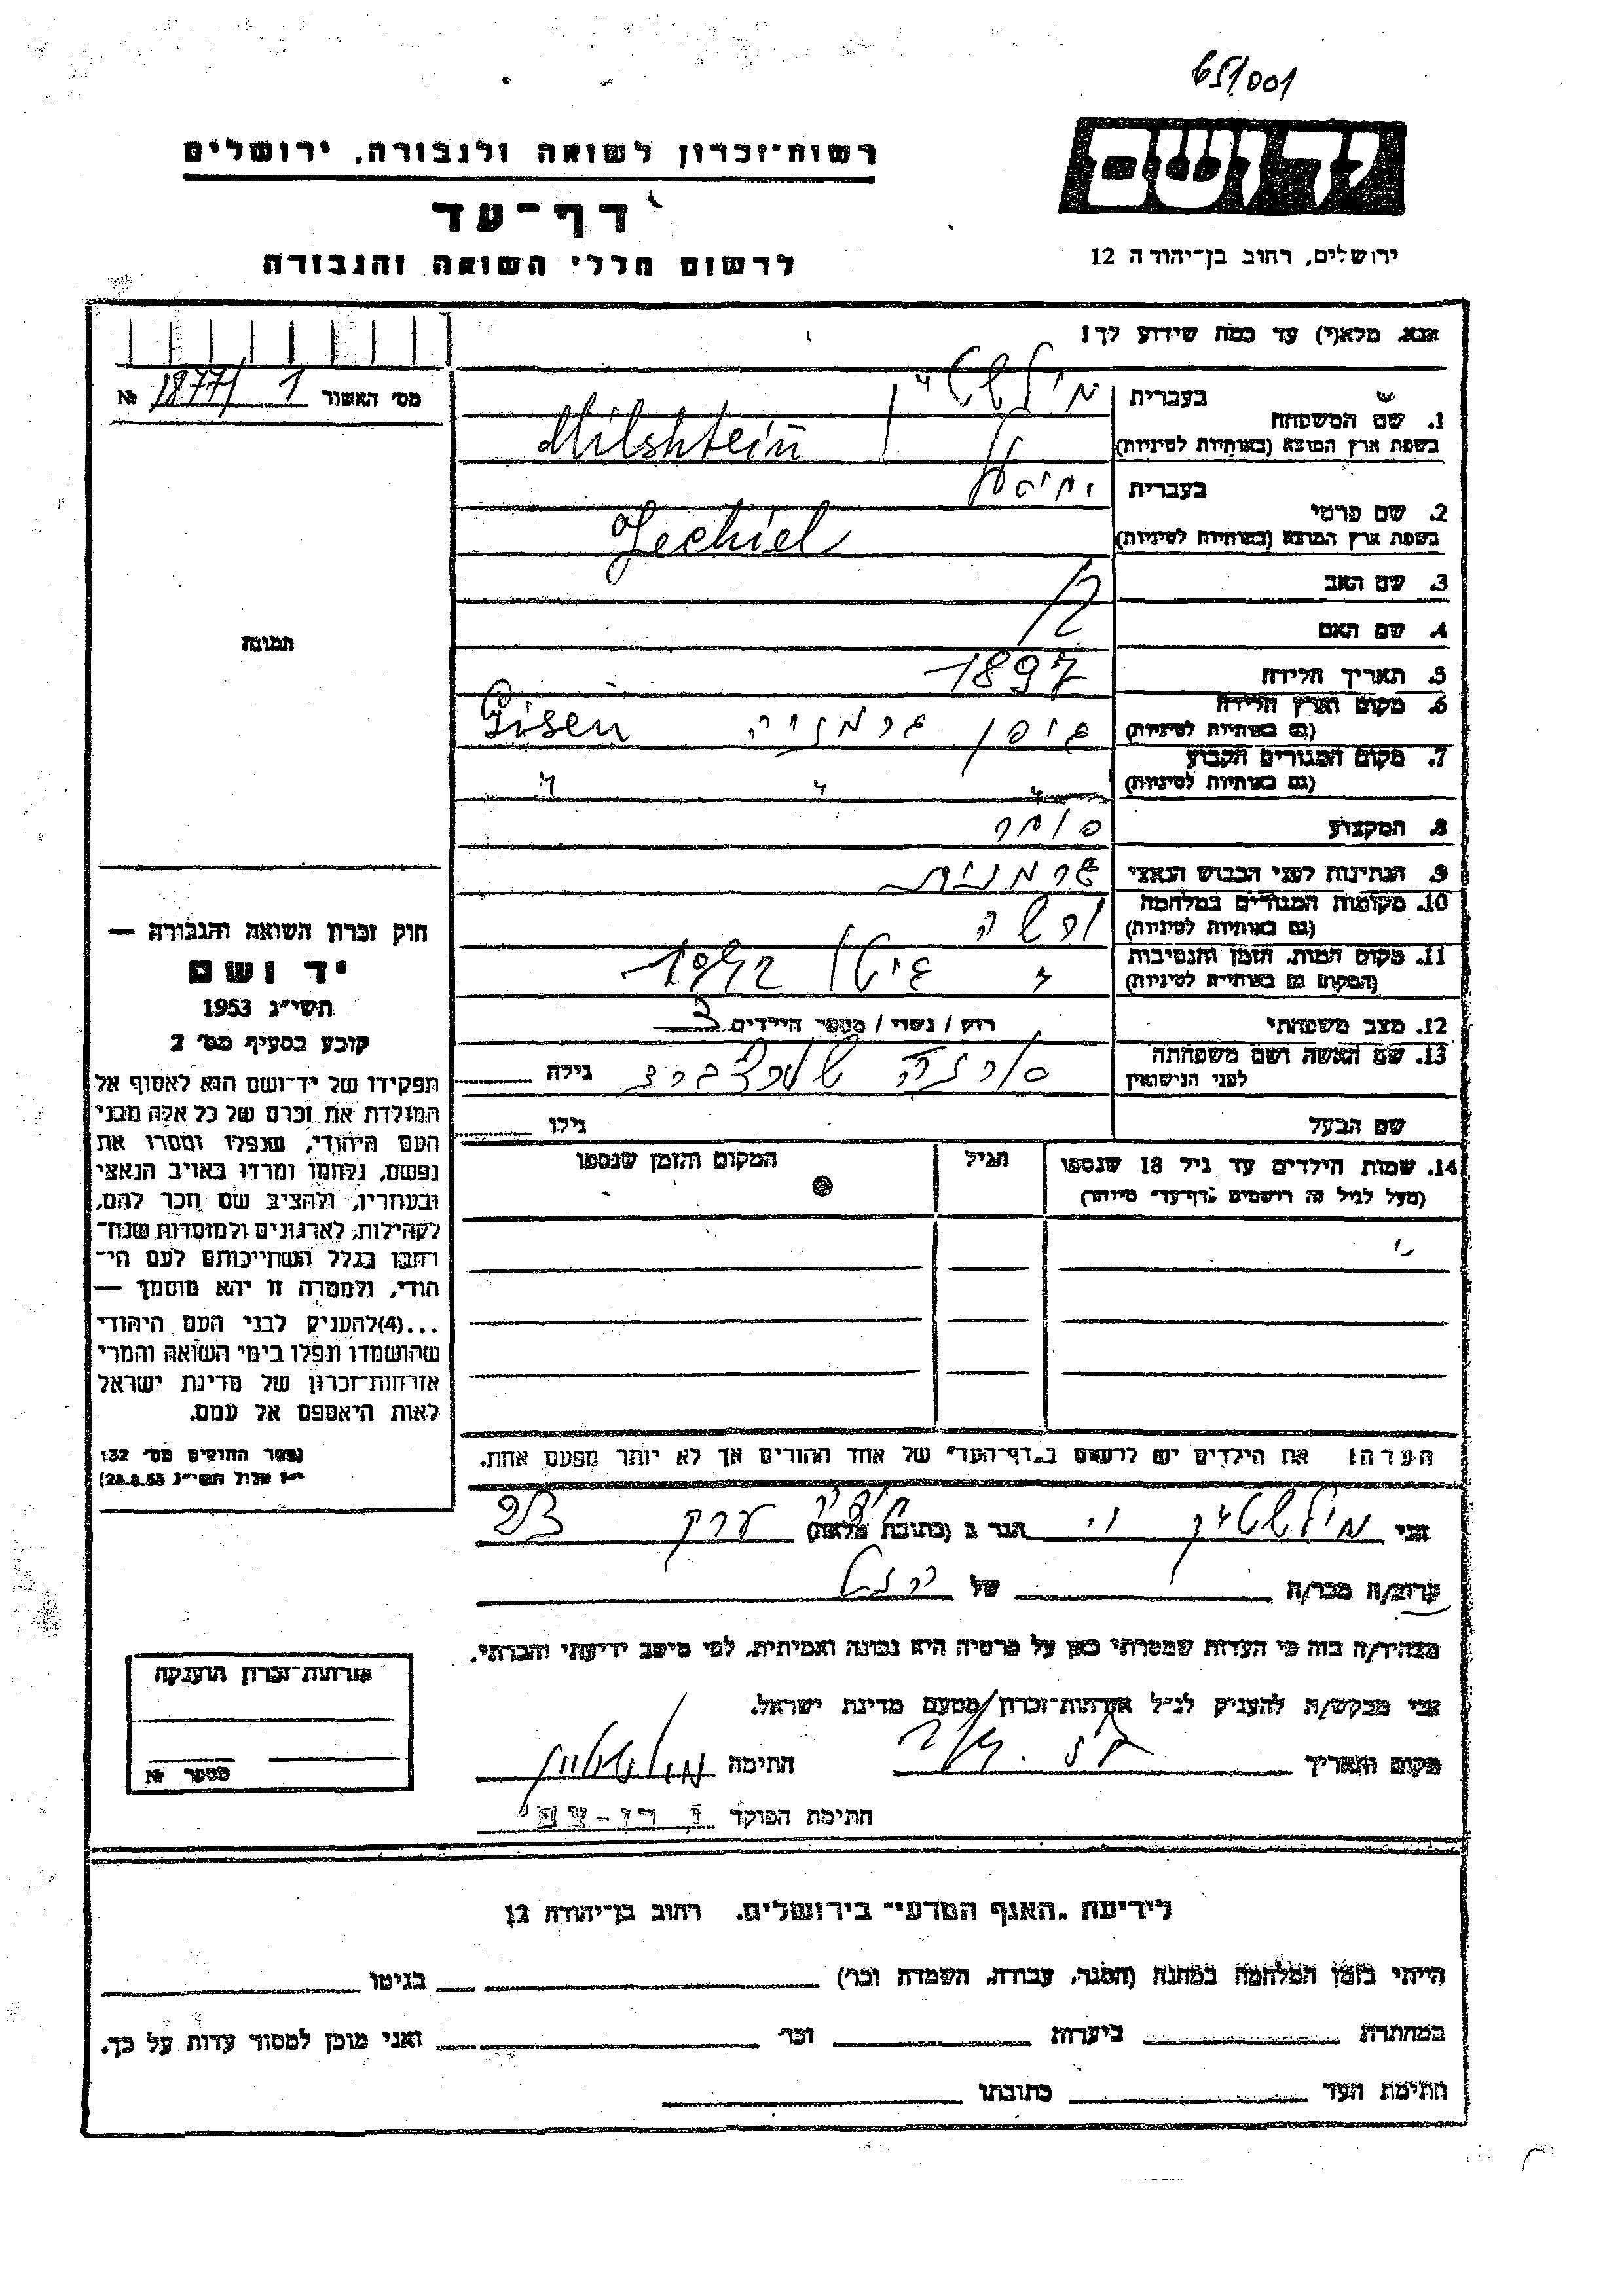 651/001
רשות־זכרון לשואה ולגבורה, ירושלים
יד ושם
דף־עד
ירושלים, רחוב בן־יהודה 12
לרשום חללי השואה והגבורה
אנא, מלא(י) עד כמה שידוע לך!
מס' האשור 1 1877/ №
1. שם המשפחה
בעברית מילשטיין
בשפת ארץ המוצא (באותיות לטיניות) Milshtein
2. שם פרטי
בעברית יחיאל
בשפת ארץ המוצא (באותיות לטיניות) Jechiel
3. שם האב
4. שם האם
5. תאריך הלידה 1897
6. מקום וארץ הלידה
(גם באותיות לטיניות) גיסן גרמניה Gisen
7. מקום המגורים הקבוע
(גם באותיות לטיניות) " " "
8. המקצוע סוחר
9. הנתינות לפני הכבוש הנאצי גרמנית
10. מקומות המגורים במלחמה
(גם באותיות לטיניות) ורשה
11. מקום המות, הזמן והנסיבות
(המקום גם באותיות לטיניות) " גיטו 1942
12. מצב משפחתי רווק / נשוי / מספר הילדים 3
13. שם האשה ושם משפחתה
לפני הנישואין
גילה
שם הבעל גילו
14. שמות הילדים עד גיל 18 שנספו
(מעל לגיל זה רושמים „דף־עד" מיוחד)
הגיל
המקום והזמן שנספו
הערה: את הילדים יש לרשום ב„דף־העד" של אחד ההורים אך לא יותר מפעם אחת.
תמונה
חוק זכרון השואה והגבורה —
יד ושם
תשי"ג 1953
קובע בסעיף מס' 2
תפקידו של יד־ושם הוא לאסוף אל
המולדת את זכרם של כל אלה מבני
העם היהודי, שנפלו ומסרו את
נפשם, נלחמו ומרדו באויב הנאצי
ובעוזריו, ולהציב שם וזכר להם,
לקהילות, לארגונים ולמוסדות שנח־
רבו בגלל השתייכותם לעם הי־
הודי, ולמטרה זו יהא מוסמך —
...(4)להעניק לבני העם היהודי
שהושמדו ונפלו בימי השואה והמרי
אזרחות־זכרון של מדינת ישראל
לאות היאספם אל עמם.
(ספר החוקים מס' 132
י"ז אלול תשי"ג 28.8.53)
אני מילשטיין הגר ב (כתובת מלאה)
קרוב/ה מכר/ה של
מצהיר/ה בזה כי העדות שמסרתי כאן על פרטיה היא נכונה ואמיתית, לפי מיטב ידיעתי והכרתי.
אני מבקש/ת להעניק לנ"ל אזרחות־זכרון מטעם מדינת ישראל.
מקום ותאריך חתימה מילשטיין
חתימת הפוקד
אזרחות־זכרון הוענקה
מספר №
לידיעת „האגף המדעי" בירושלים, רחוב בן־יהודה 12
הייתי בזמן המלחמה במחנה (הסגר, עבודה, השמדה וכו') בגיטו
במחתרת ביערות וכו' ואני מוכן למסור עדות על כך.
חתימת העד כתובתו